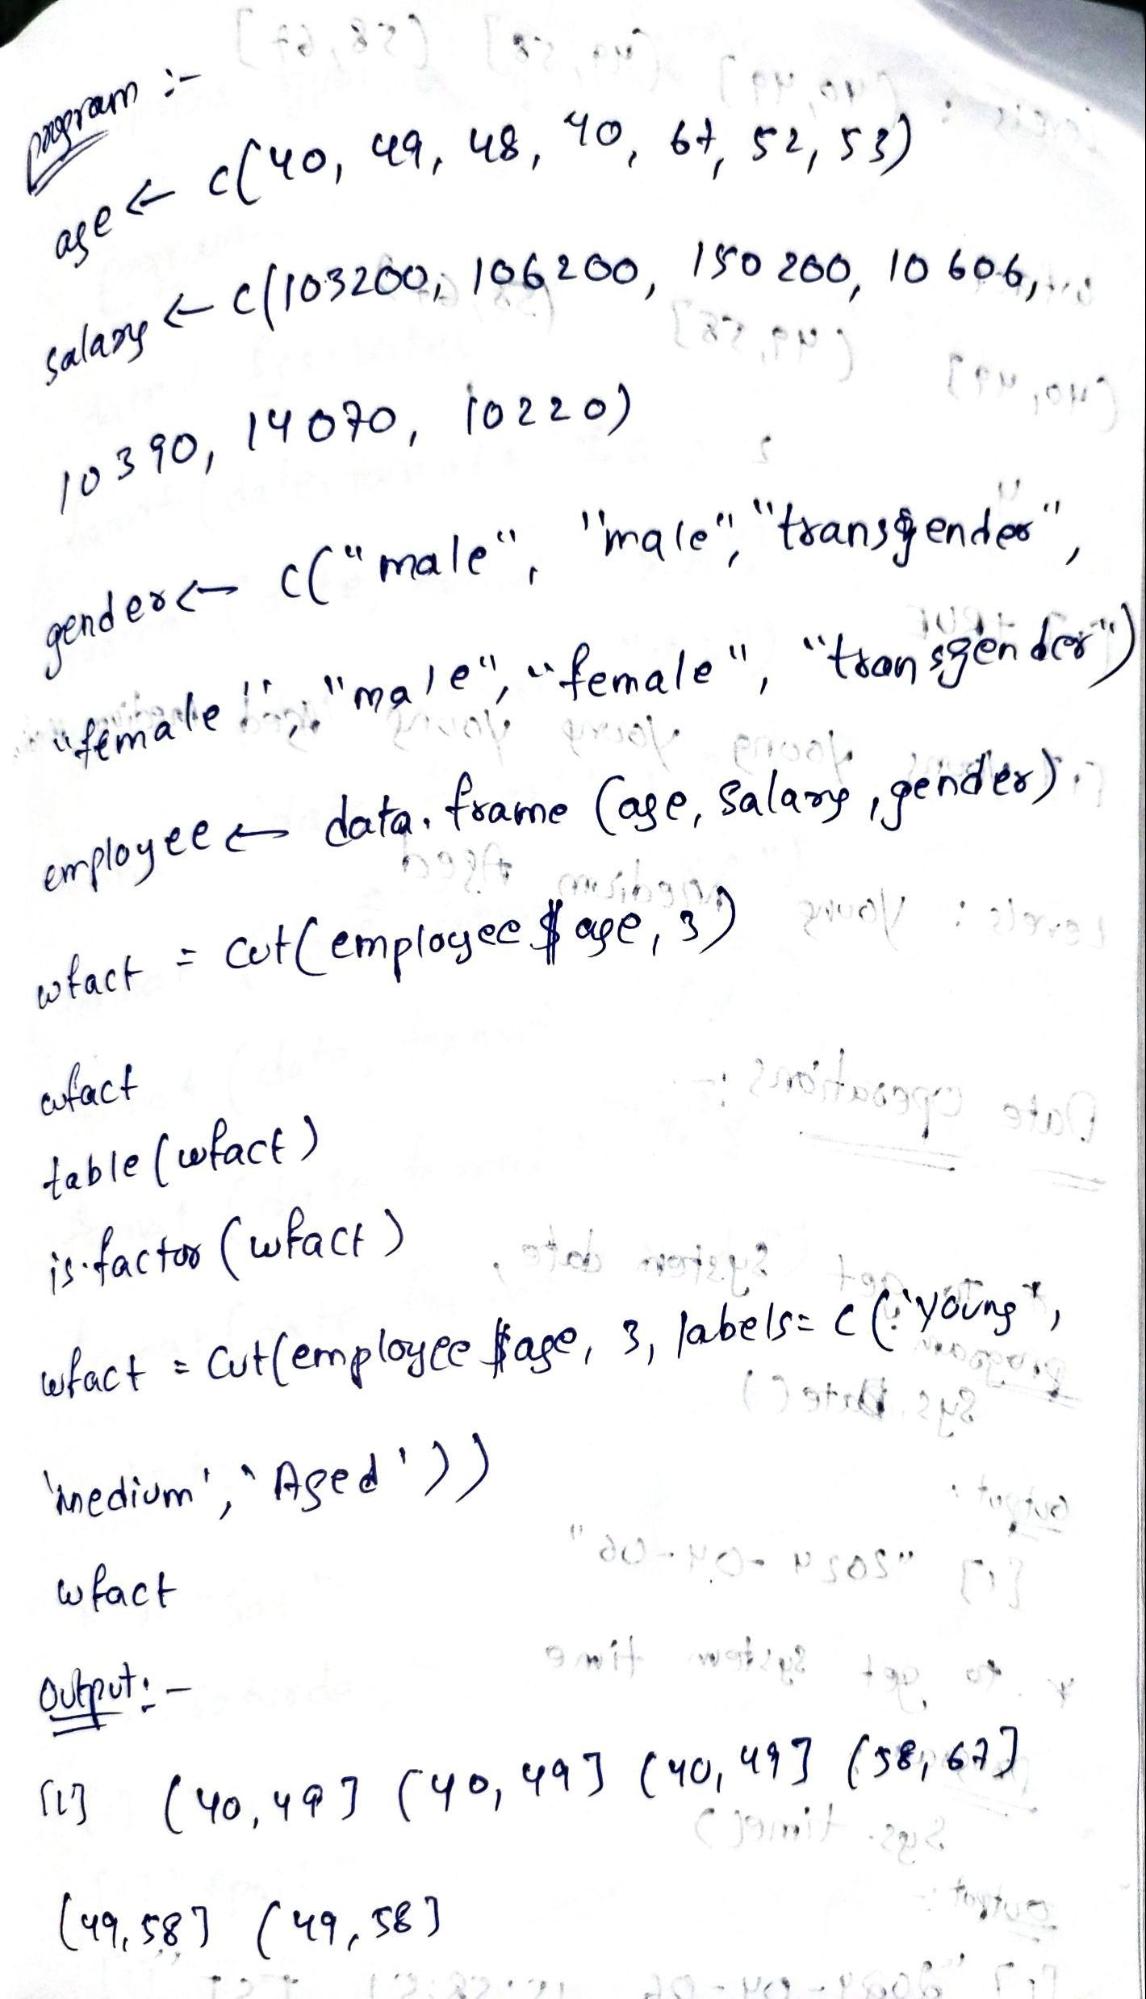 program :-
age <- c(40, 49, 48, 40, 67, 52, 53)
salary <- c(103200, 106200, 150200, 10606,
10390, 14070, 10220)
gender <- c("male", "male", "transgender",
"female", "male", "female", "transgender")
employee <- data.frame (age, salary, gender)
wfact = cut(employee $ age, 3)
wfact
table (wfact)
is.factor (wfact)
wfact = cut(employee $age, 3, labels= c ('young',
'medium', 'Aged'))
wfact
output:-
[1] (40,49] (40,49] (40,49] (58,67]
(49,58] (49,58]